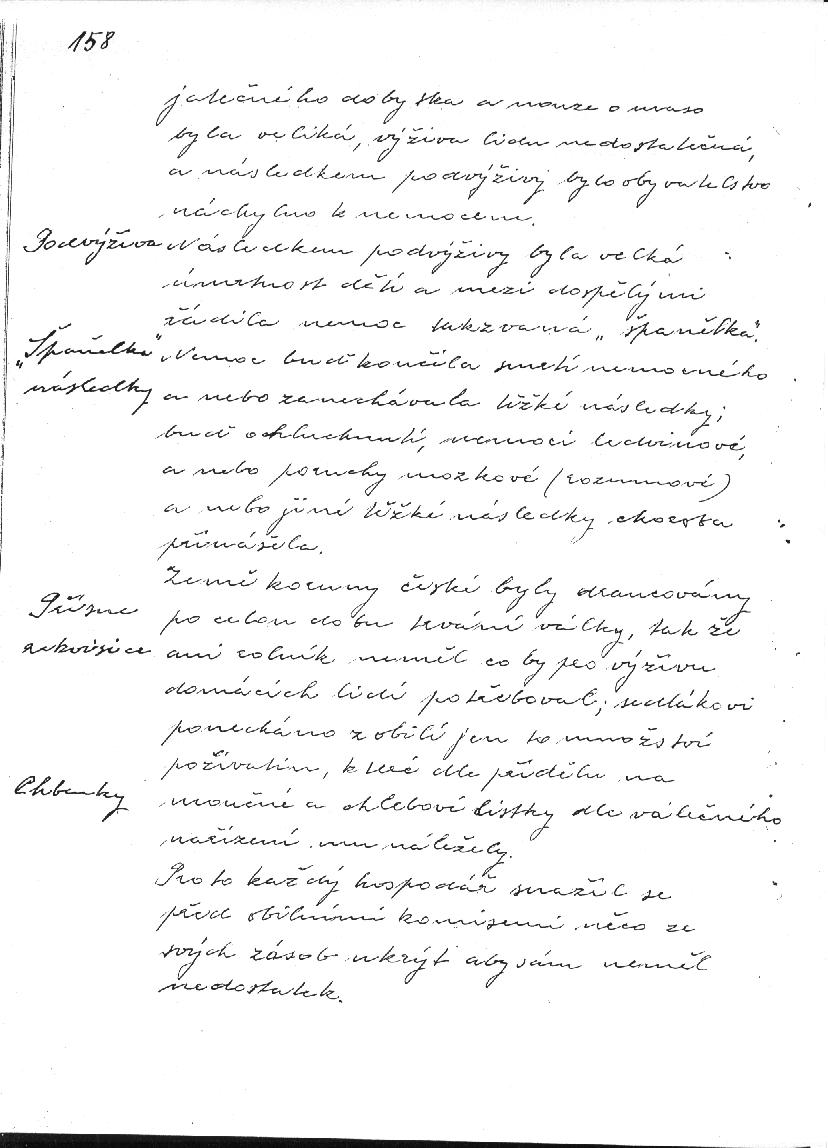 158
jatečného dobytka a nouze o maso
byla veliká, výživa lidu nedostatečná,
a následkem podvýživy bylo obyvatelstvo
náchylno k nemocem.
Podvýživa
Následkem podvýživy byla velká
úmrtnost dětí a mezi dospělými
řádila nemoc takzvaná „španělka".
„Španělka"
následky
Nemoc buď končila smrtí nemocného
a nebo zanechávala těžké následky;
buď ohluchnutí, nemoci ledvinové,
a nebo poruchy mozkové (rozumové)
a nebo jiné těžké následky choroba
přinášela.
Přísné
rekvisice
Země koruny české byly drancovány
po celou dobu trvání války, tak že
ani rolník neměl co by pro výživu
domácích lidí potřeboval; sedlákovi
ponecháno z obilí jen to množství
poživatin, které dle přídělu na
Chlbenky
moučné a chlebové lístky dle válečného
nařízení mu náležely.
Proto každý hospodář snažil se
před obilními komisemi něco ze
svých zásob ukrýt aby sám neměl
nedostatek.